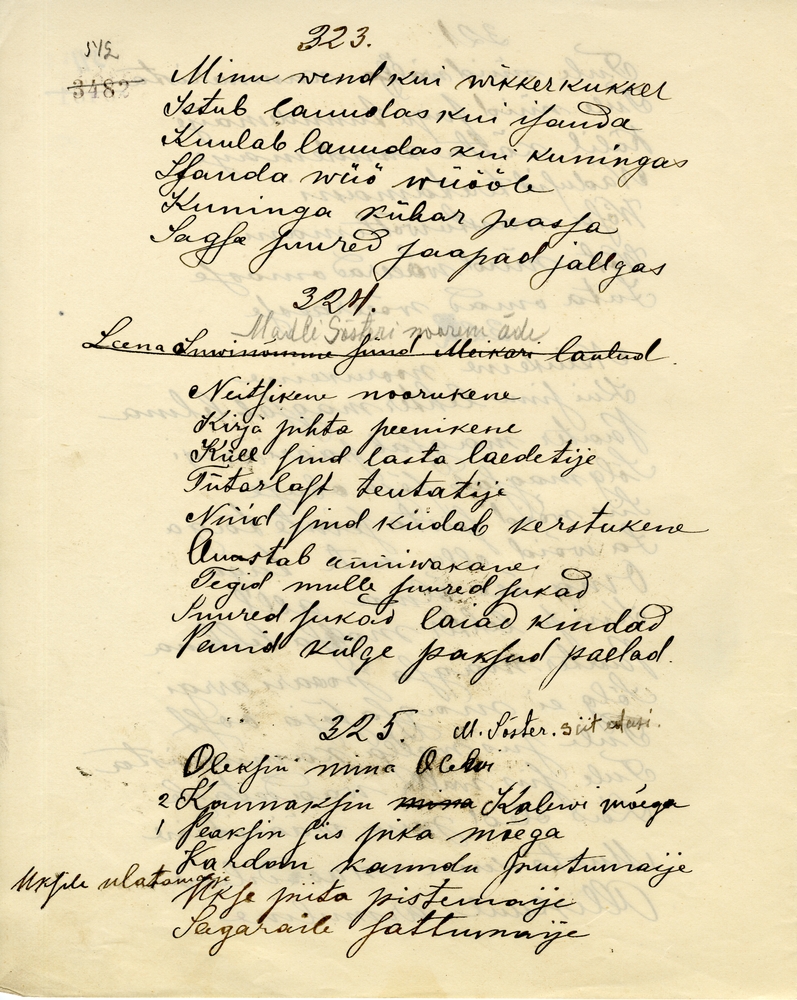 512
3482
323.
Minu wend kui wikkerkukker
Istub lauudas kui isanda
Kuulab lauudas kui kuningas
Isanda wüö wüööle
Kuninga kübar peassa
Sagse suured saapad jallgas
324.
Madli Sösteri noorem õde
Leena sünd Meikari laulud.
Neitsikene noorukene
Kirja pihta peenikene
Küll sind lasta laedetije
Tütarlast teutatije
Nüüd sind kiidab kerstukene
Auustab anniwakane
Tegid mulle suured sukad
Suured sukad laiad kindad
Panid külge paksud paelad.
325. M. Söster. siit edasi.
Oleksin mina Olewi
2 Kannaksin mina Kalewi mõega
1 Peaksin siis pika mõega
Kardan kanndu puutumaije
Uksile ulatamaije
Ukse piita pistemaije
Sagaraile sattumaije